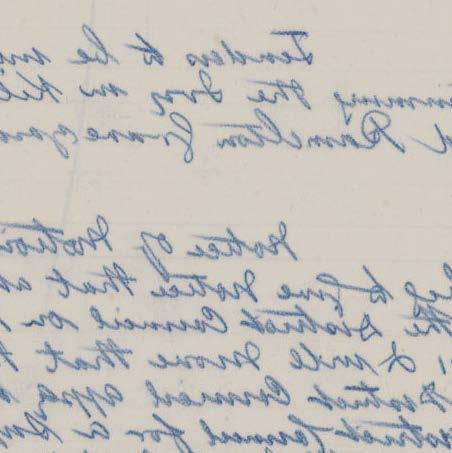 Tenders to be
the Ivy in Kil
Ramelton Graveyar
Notice of Motion
to give Notice that at
the District Council on
I will move that
District Council appo
Council for a